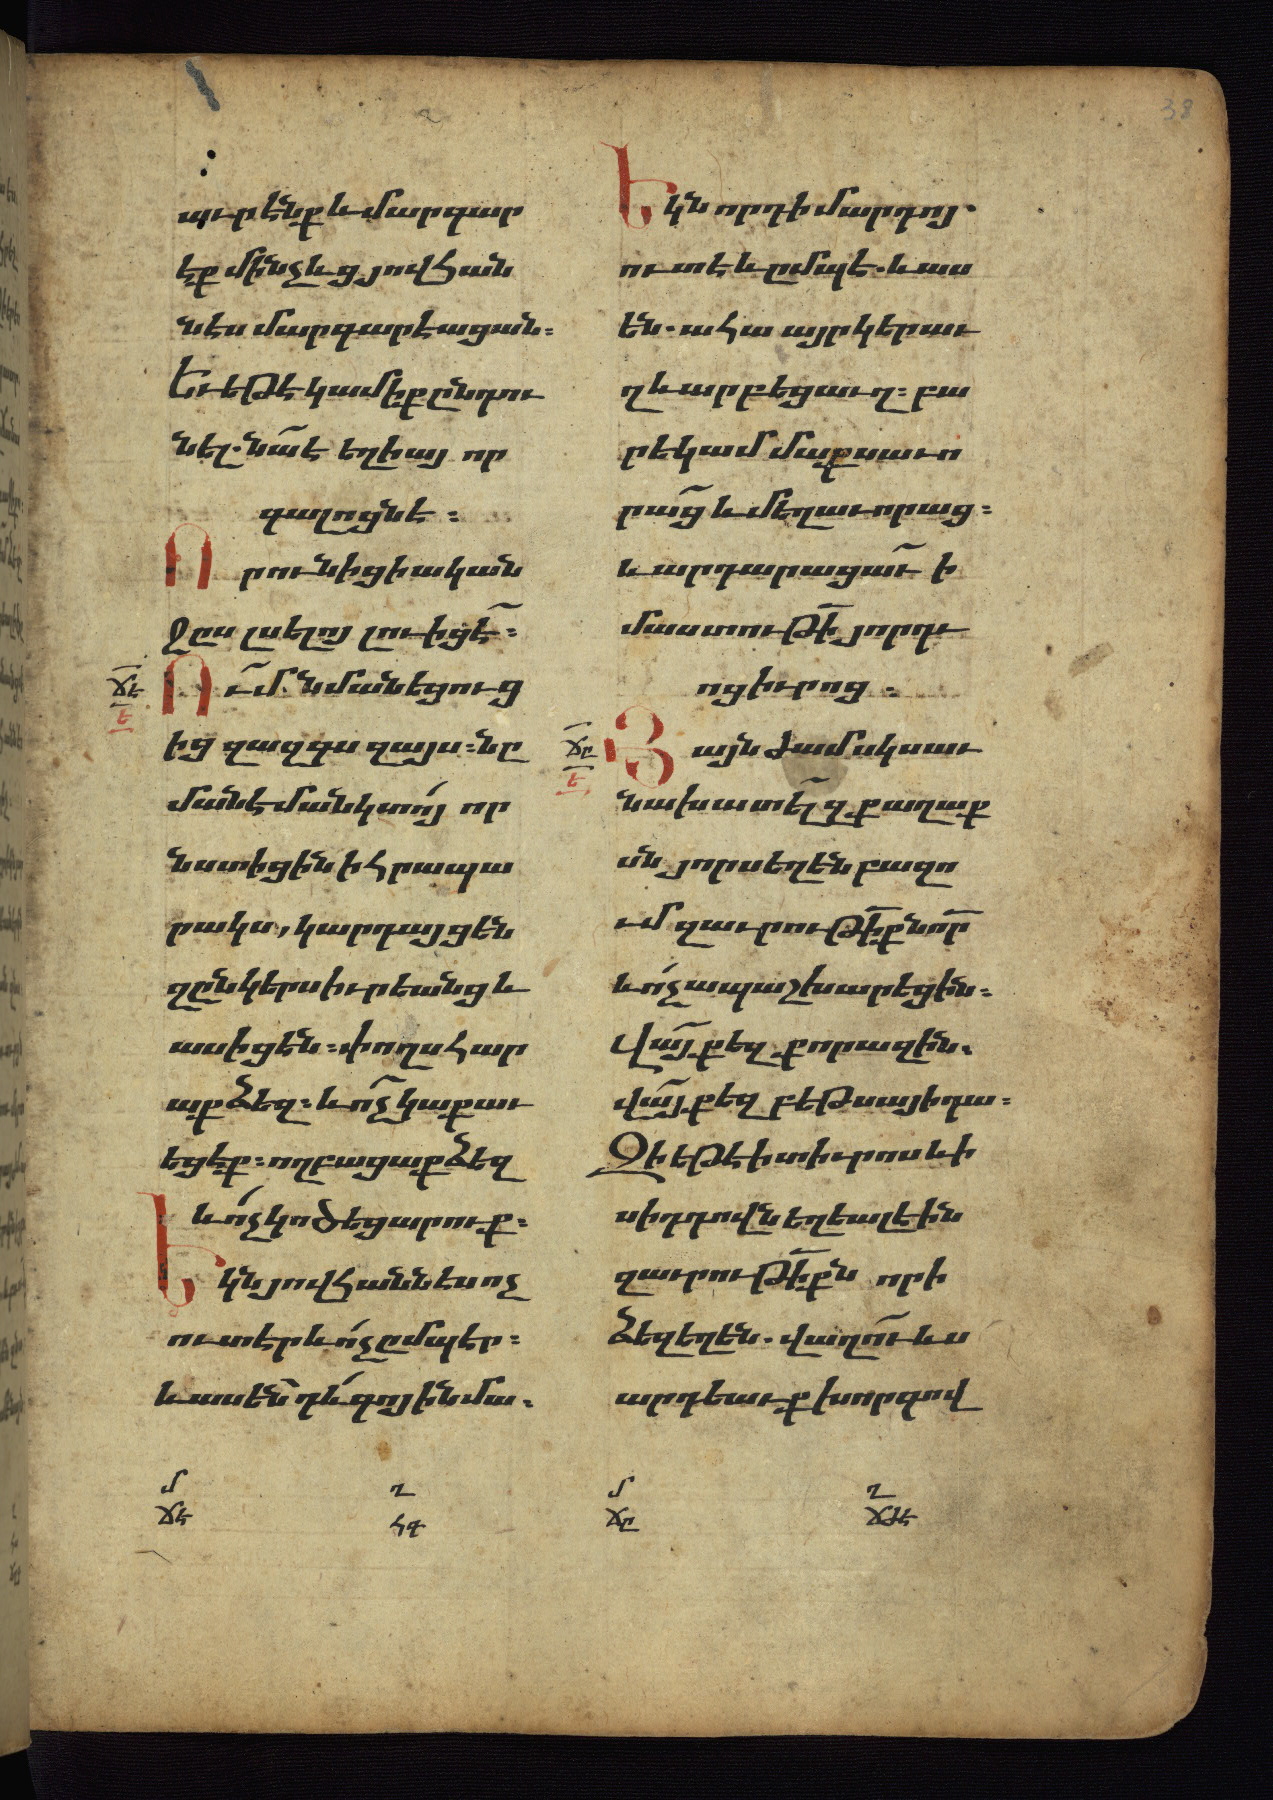 38
պւրէնք և մարգար
էք մինչև ց յովհան
նէս մարգարէացան։
Եւ եթէ կամիք ընդու
նել. նա̄ է եղիայ որ
գալոցնէ։
Ո րունիցի ական
ջըս լսելոյ լուիցէ̄։
Ո ւ̄մ. նմանեցուց
ից զազգս զայս։ նը
մանէ մանկտոյ որ
նստիցին ի հրապա
րակս, կարդայցեն
զընկերս իւրեանց և
ասիցեն։ փողս հար
աք ձեզ։ և ոչ կաքաւ
եցէք։ ողբացաք ձեզ
և ոչ կոծեցարուք։
Ե կն յովհաննէս ոչ
ուտէր և ոչ ըմպէր։
և ասեն դև գոյ ի նմա.
ՃԷ
Ե
Ե կն որդի մարդոյ.
ուտէ և ըմպէ. և աս
են. ահա այր կերաւ
ղ և արբեցաւղ։ բա
րեկամ մաքսաւո
րա̄ց և մեղաւորաց։
և արդարացաւ̄ ի
մաստութի̄ յորդւ
ոց իւրոց։
Զ այնժամ սկսաւ
նախատե̄լ զքաղաք
սն յորս եղեն բազո
ւմ զաւրութի̄ք նո̄ր
և ոչ ապաշխարեցին։
Վա̄յ քեզ քորազին.
վա̄յ քեզ բեթսայիդա։
Զի եթէ ի տիւրոս և ի
սիդդովն եղեալ էին
զաւրութի̄քն որ ի
ձեզ եղեն. վաղու̄ ևս
արդեաւք խորգով
ՃԸ
Ե
մ
ՃԷ
ղ
ՀԳ
մ
ՃԸ
ղ
ՃԺԵ